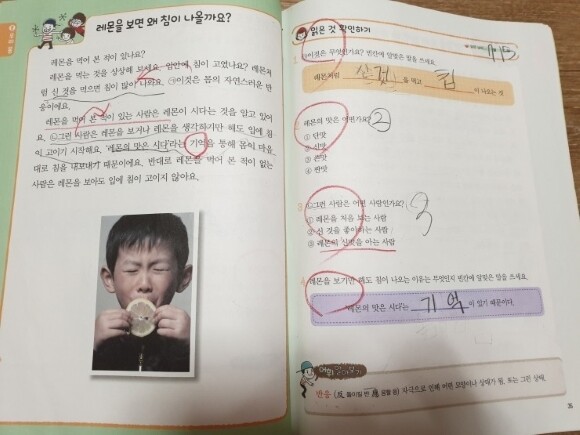 레몬을 보면 왜 침이 나올까요?
레몬을 먹어 본 적이 있나요?
레몬을 먹는 것을 상상해 보세요. 입안에 침이 고였나요? 레몬처
럼 신 것을 먹으면 침이 많이 나와요. ㉠이것은 몸의 자연스러운 반
응이에요.
레몬을 먹어 본 적이 있는 사람은 레몬이 시다는 것을 알고 있어
요. ㉡그런 사람은 레몬을 보거나 레몬을 생각하기만 해도 입에 침
이 고이기 시작해요. '레몬의 맛은 시다'라는 기억을 통해 몸이 마음
대로 침을 내보내기 때문이에요. 반대로 레몬을 먹어 본 적이 없는
사람은 레몬을 보아도 입에 침이 고이지 않아요.
읽은 것 확인하기
1 ㉠이것은 무엇인가요? 빈칸에 알맞은 말을 쓰세요.
레몬처럼 신 것 을 먹고 침 이 나오는 것
2 레몬의 맛은 어떤가요? ②
① 단맛
② 신맛
③ 쓴맛
④ 짠맛
3 ㉡그런 사람은 어떤 사람인가요?
① 레몬을 처음 보는 사람
② 신 것을 좋아하는 사람
③ 레몬의 신맛을 아는 사람
4 레몬을 보기만 해도 침이 나오는 이유는 무엇인지 빈칸에 알맞은 말을 쓰세요.
'레몬의 맛은 시다'는 기억 이 있기 때문이다.
반응 (反 돌이킬 반 應 응할 응) 자극으로 인해 어떤 모양이나 상태가 됨. 또는 그런 상태.